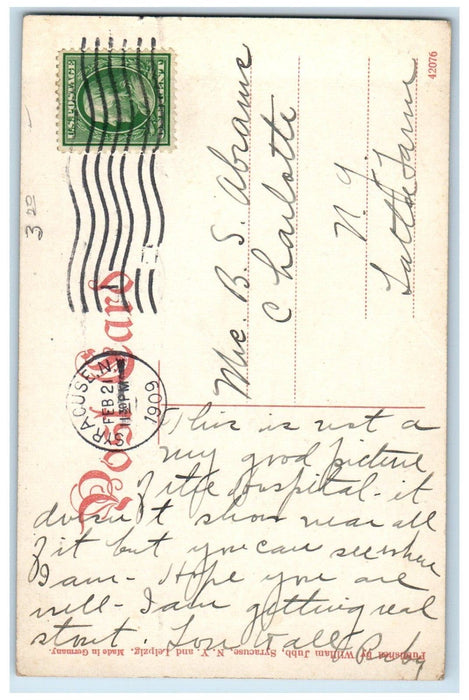 Post Card
U.S. POSTAGE
SYRACUSE, N.Y.
FEB 21
11 30 PM
1909
3 20
42076
Mrs. B. S. Abrams
Charlotte
N. Y.
Latta Farm
This is not a
my good picture
of the hospital - it
doesn't show near all
of it but you can see where
I am - Hope you are
well - I am getting real
stout. Love to all - Ruby
Published by William Jubb, Syracuse, N. Y. and Leipzig. Made in Germany.